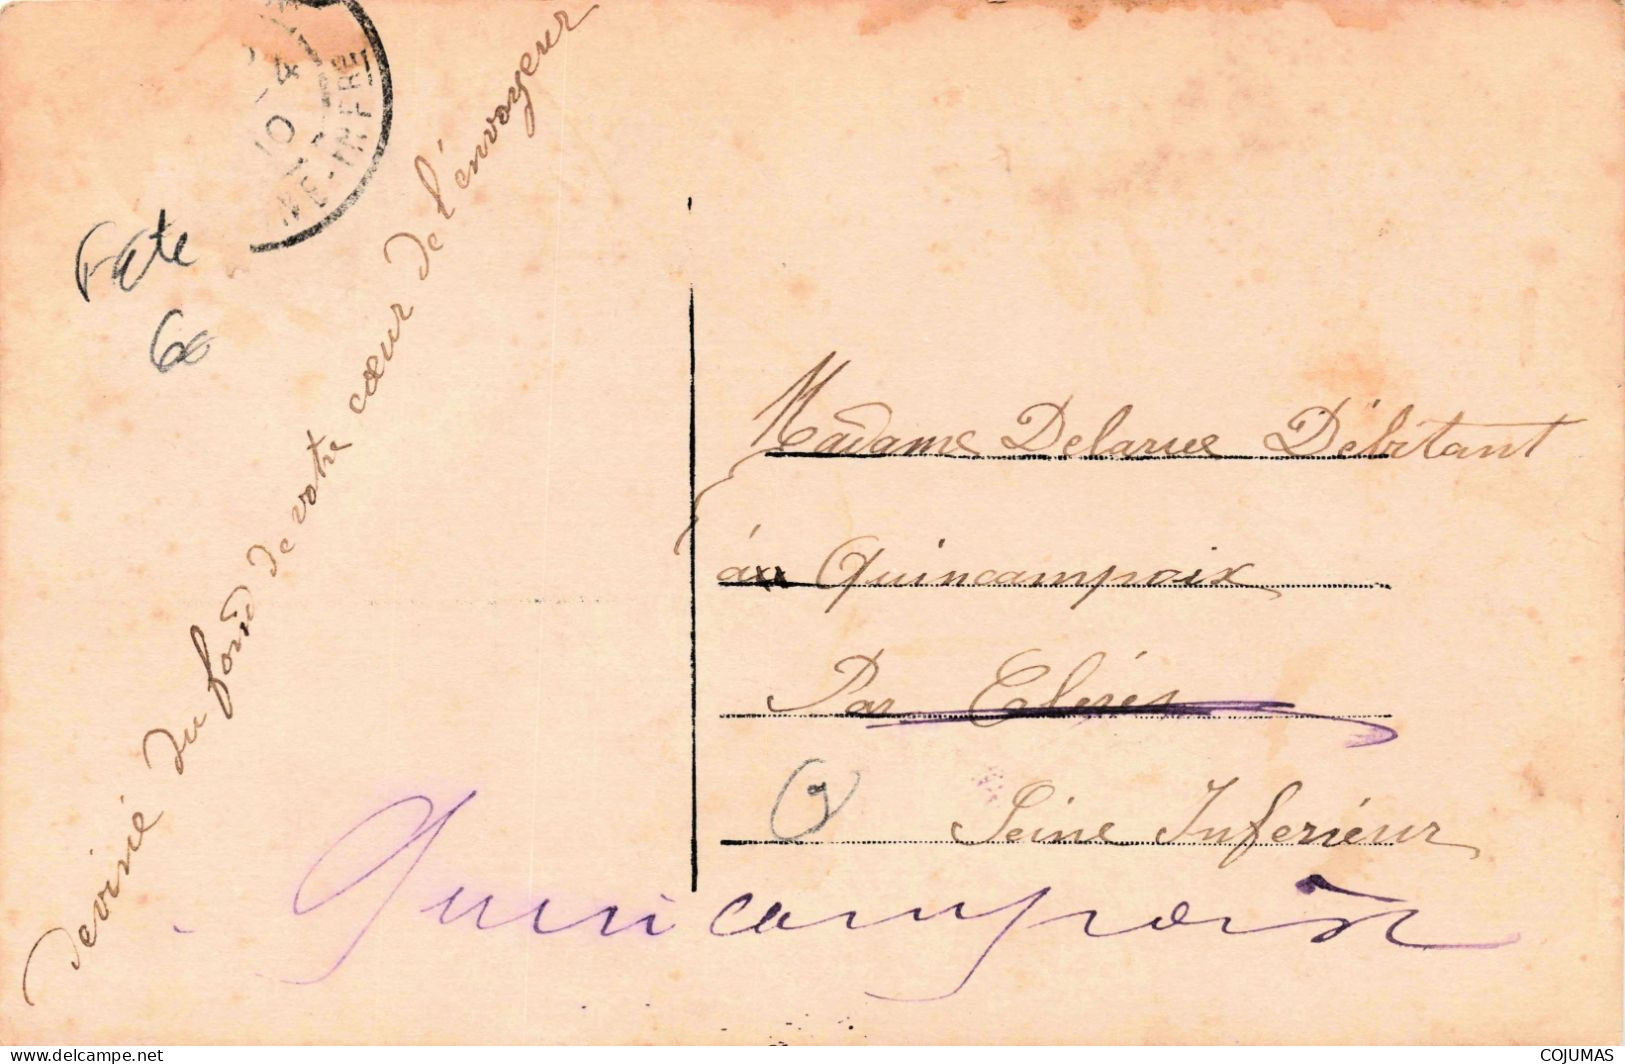 NE-INFRE
Fete
60
devine du fond de votre cœur de l'énvoyeur
Madame Delarue Débitant
à Quincampoix
Par Clérès
Seine Inferieur
Quincampoix
www.delcampe.net
COJUMAS